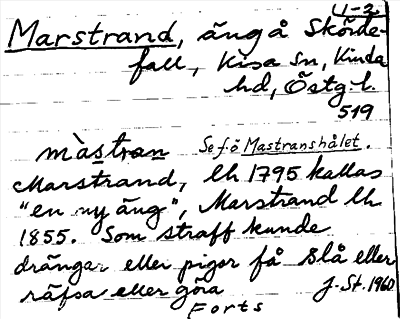 1-2
Marstrand, äng å Skörde-
fall, Kisa sn, Kinda
hd, Östg.l.
519
màstran Se f.ö Mastranshålet.
Marstrand, lh 1795 kallas
"en ny äng", Marstrand lh
1855. Som straff kunde
drängar eller pigor få slå eller
räfsa eller göra J. St. 1960
Forts